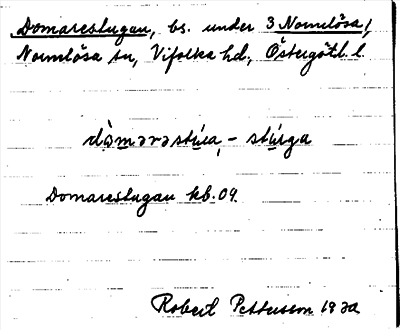 Domarestugan, bs. under 3 Normlösa/,
Normlösa sn, Vifolka hd, Östergötl. l.
dômarastúa, - stúga
Domarestugan kb. 09.
Robert Pettersson 19